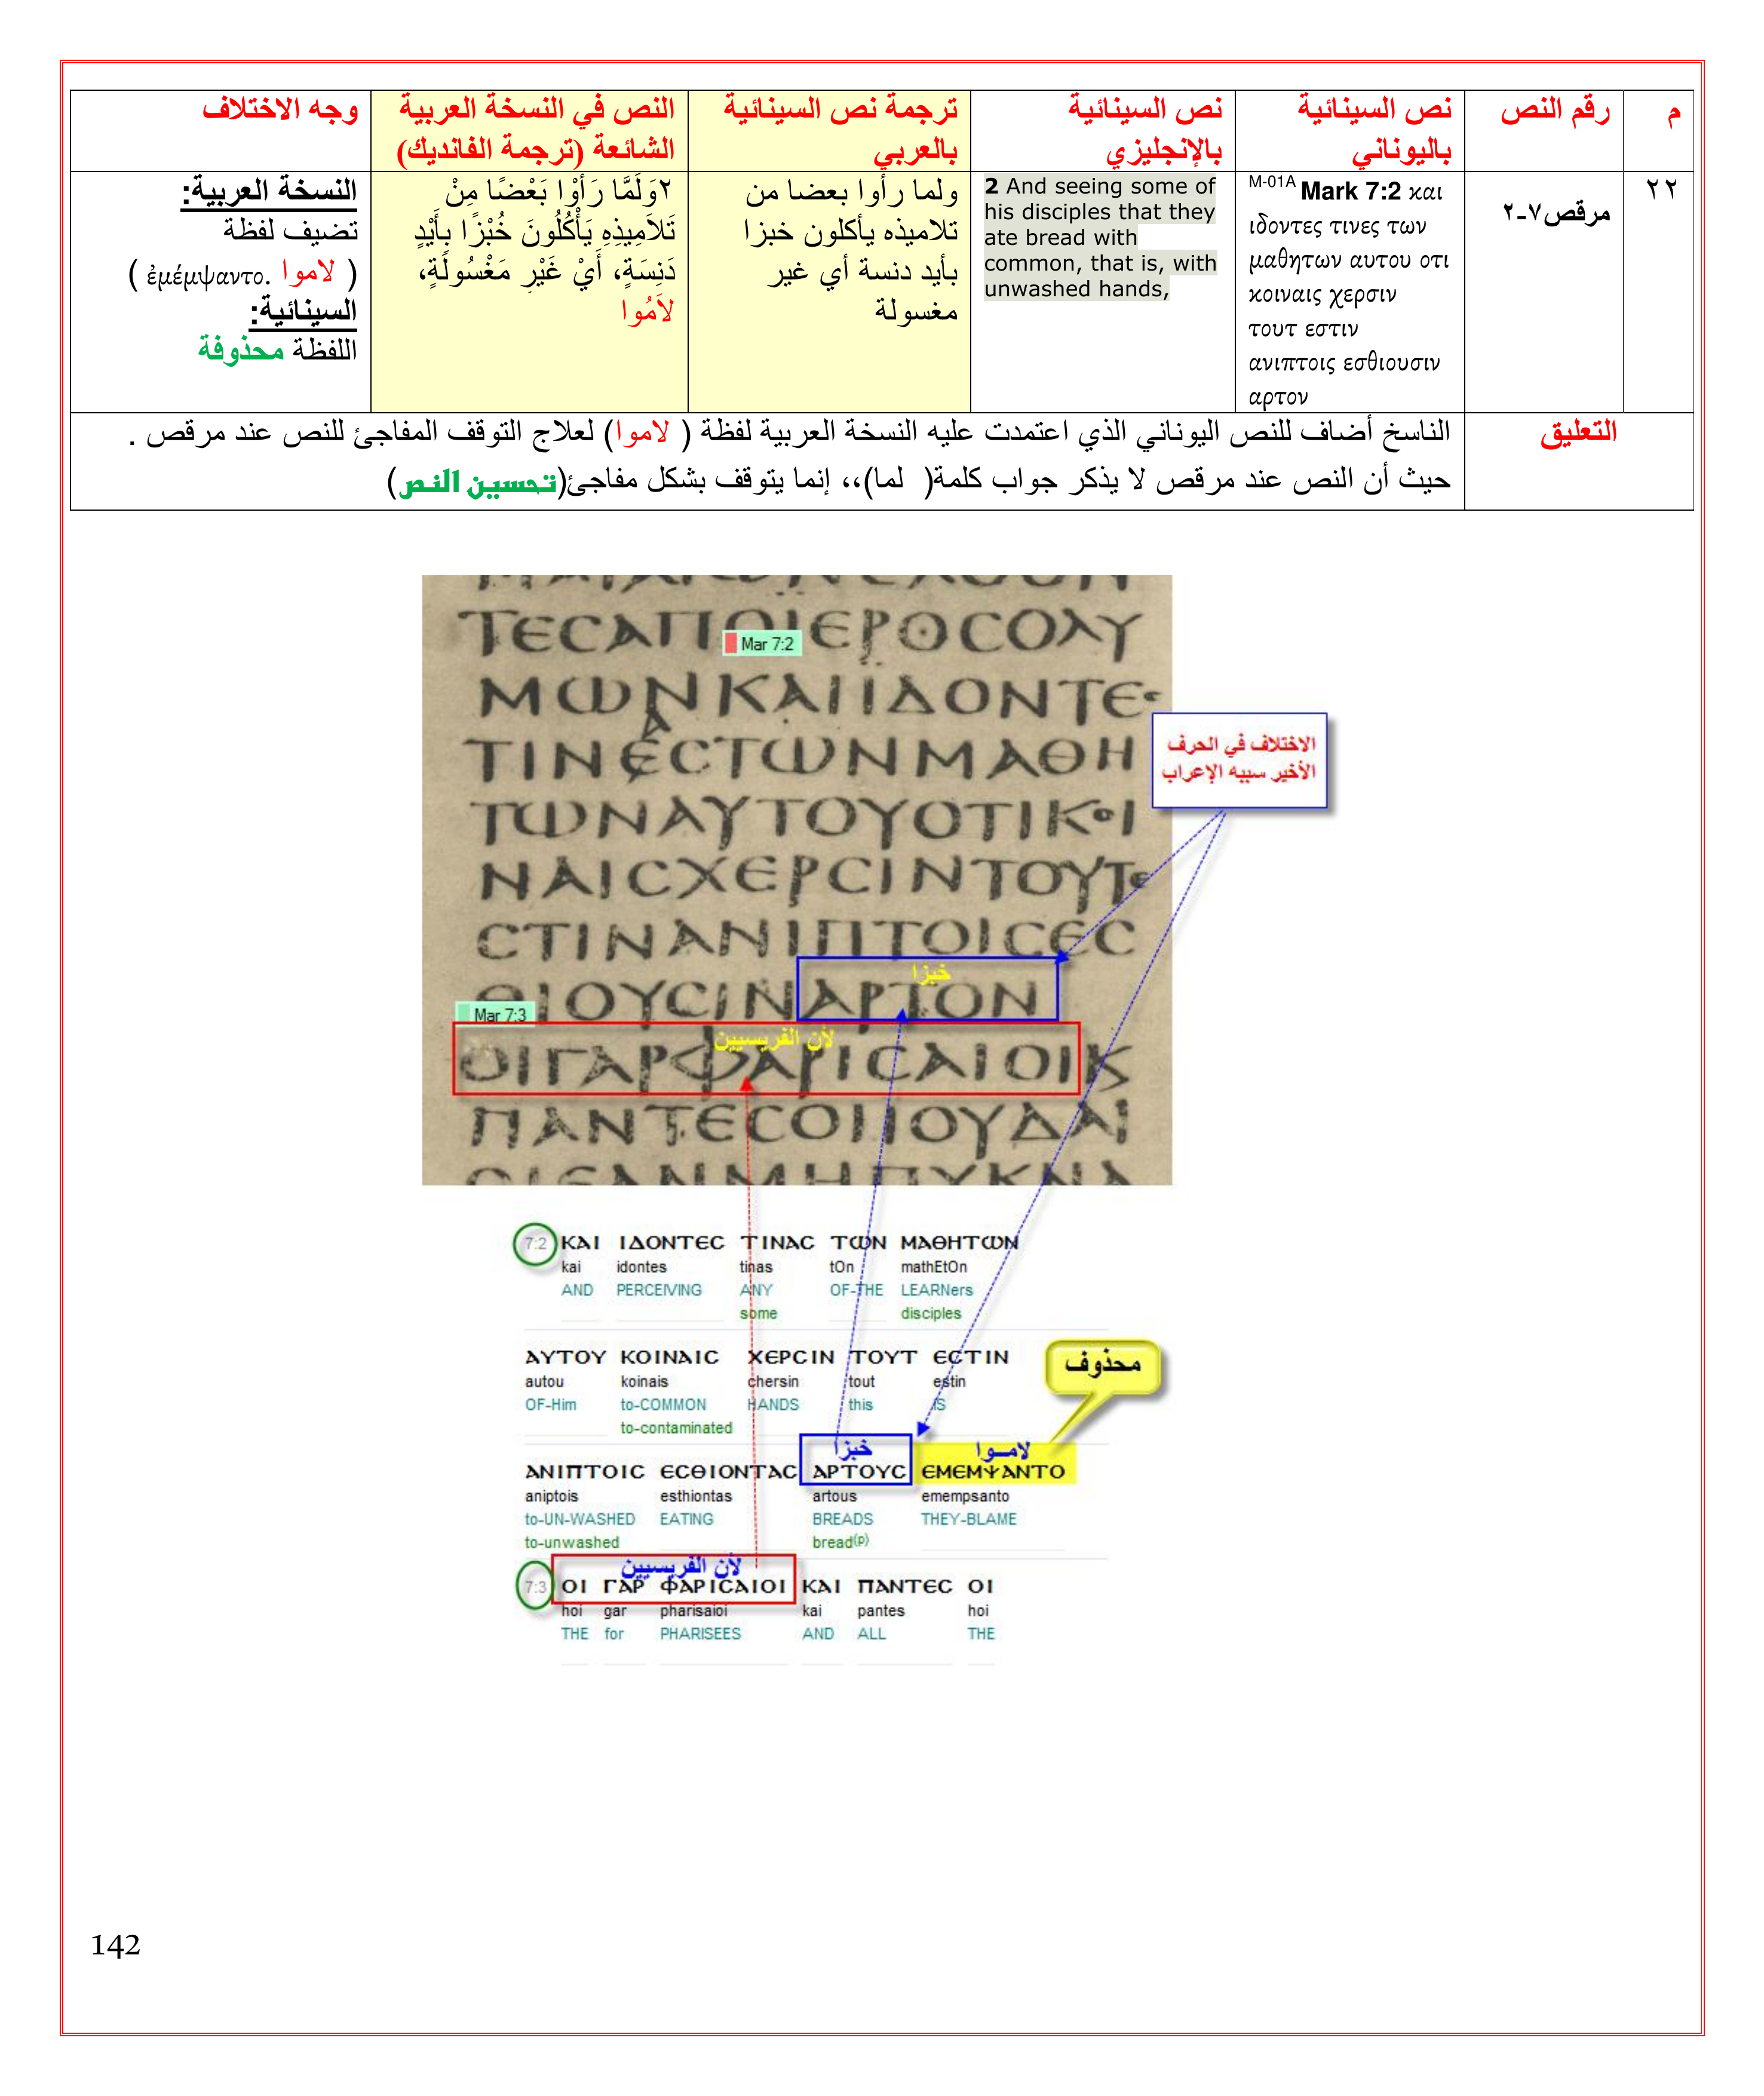 م
رقم النص
نص السينائية باليوناني
نص السينائية بالإنجليزي
ترجمة نص السينائية بالعربي
النص في النسخة العربية الشائعة (ترجمة الفانديك)
وجه الاختلاف
٢٢
مرقص٧-٢
M-01A Mark 7:2 και
ιδοντες τινες των
μαθητων αυτου οτι
κοιναις χερσιν
τουτ εστιν
ανιπτοις εσθιουσιν
αρτον
2 And seeing some of
his disciples that they
ate bread with
common, that is, with
unwashed hands,
ولما رأوا بعضا من
تلاميذه يأكلون خبزا
بأيد دنسة أي غير
مغسولة
٢وَلَمَّا رَأَوْا بَعْضًا مِنْ
تَلاَمِيذِهِ يَأْكُلُونَ خُبْزًا بِأَيْدٍ
دَنِسَةٍ، أَيْ غَيْرِ مَغْسُولَةٍ،
لاَمُوا
النسخة العربية:
تضيف لفظة
( لاموا .ἐμέμψαντο )
السينائية:
اللفظة محذوفة
التعليق
الناسخ أضاف للنص اليوناني الذي اعتمدت عليه النسخة العربية لفظة ( لاموا) لعلاج التوقف المفاجئ للنص عند مرقص .
حيث أن النص عند مرقص لا يذكر جواب كلمة( لما)،، إنما يتوقف بشكل مفاجئ(تحسين النص)
ΤΕCΑΠΟΙΕΡΟCΟΛΥ
Mar 7:2
ΜΩΝΚΑΙΙΔΟΝΤΕC
ΤΙΝΕCΤΩΝΜΑΘΗ
ΤΩΝΑΥΤΟΥΟΤΙΚΟΙ
ΝΑΙCΧΕΡCΙΝΤΟΥΤΕ
CΤΙΝΑΝΙΠΤΟΙCΕC
ΘΙΟΥCΙΝΑΡΤΟΝ
خبزا
Mar 7:3
لأن الفريسيين
ΟΙΓΑΡΦΑΡΙCΑΙΟΙΚ
ΠΑΝΤΕCΟΙΙΟΥΔΑΙ
ΟΙΕΑΝΜΗΠΥΚΝΑ
الاختلاف في الحرف
الأخير سببه الإعراب
7:2 ΚΑΙ ΙΔΟΝΤΕC ΤΙΝΑC ΤΩΝ ΜΑΘΗΤΩΝ
kai idontes tinas tOn mathEtOn
AND PERCEIVING ANY OF-THE LEARNers
some disciples
ΑΥΤΟΥ ΚΟΙΝΑΙC ΧΕΡCΙΝ ΤΟΥΤ ΕCΤΙΝ
autou koinais chersin tout estin
OF-Him to-COMMON HANDS this IS
to-contaminated
محذوف
خبزا لامــوا
ΑΝΙΠΤΟΙC ΕCΘΙΟΝΤΑC ΑΡΤΟΥC ΕΜΕΜΨΑΝΤΟ
aniptois esthiontas artous emempsanto
to-UN-WASHED EATING BREADS THEY-BLAME
to-unwashed bread(p)
لأن الفريسيين
7:3 ΟΙ ΓΑΡ ΦΑΡΙCΑΙΟΙ ΚΑΙ ΠΑΝΤΕC ΟΙ
hoi gar pharisaioi kai pantes hoi
THE for PHARISEES AND ALL THE
142